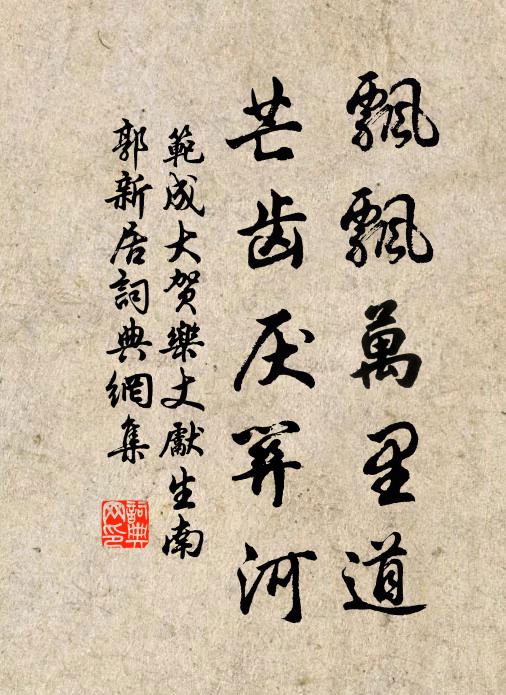 飄飄萬里道
芒齿厌关河
範成大賀樂丈獻生南
郭新居詞典網集
詞典
网印